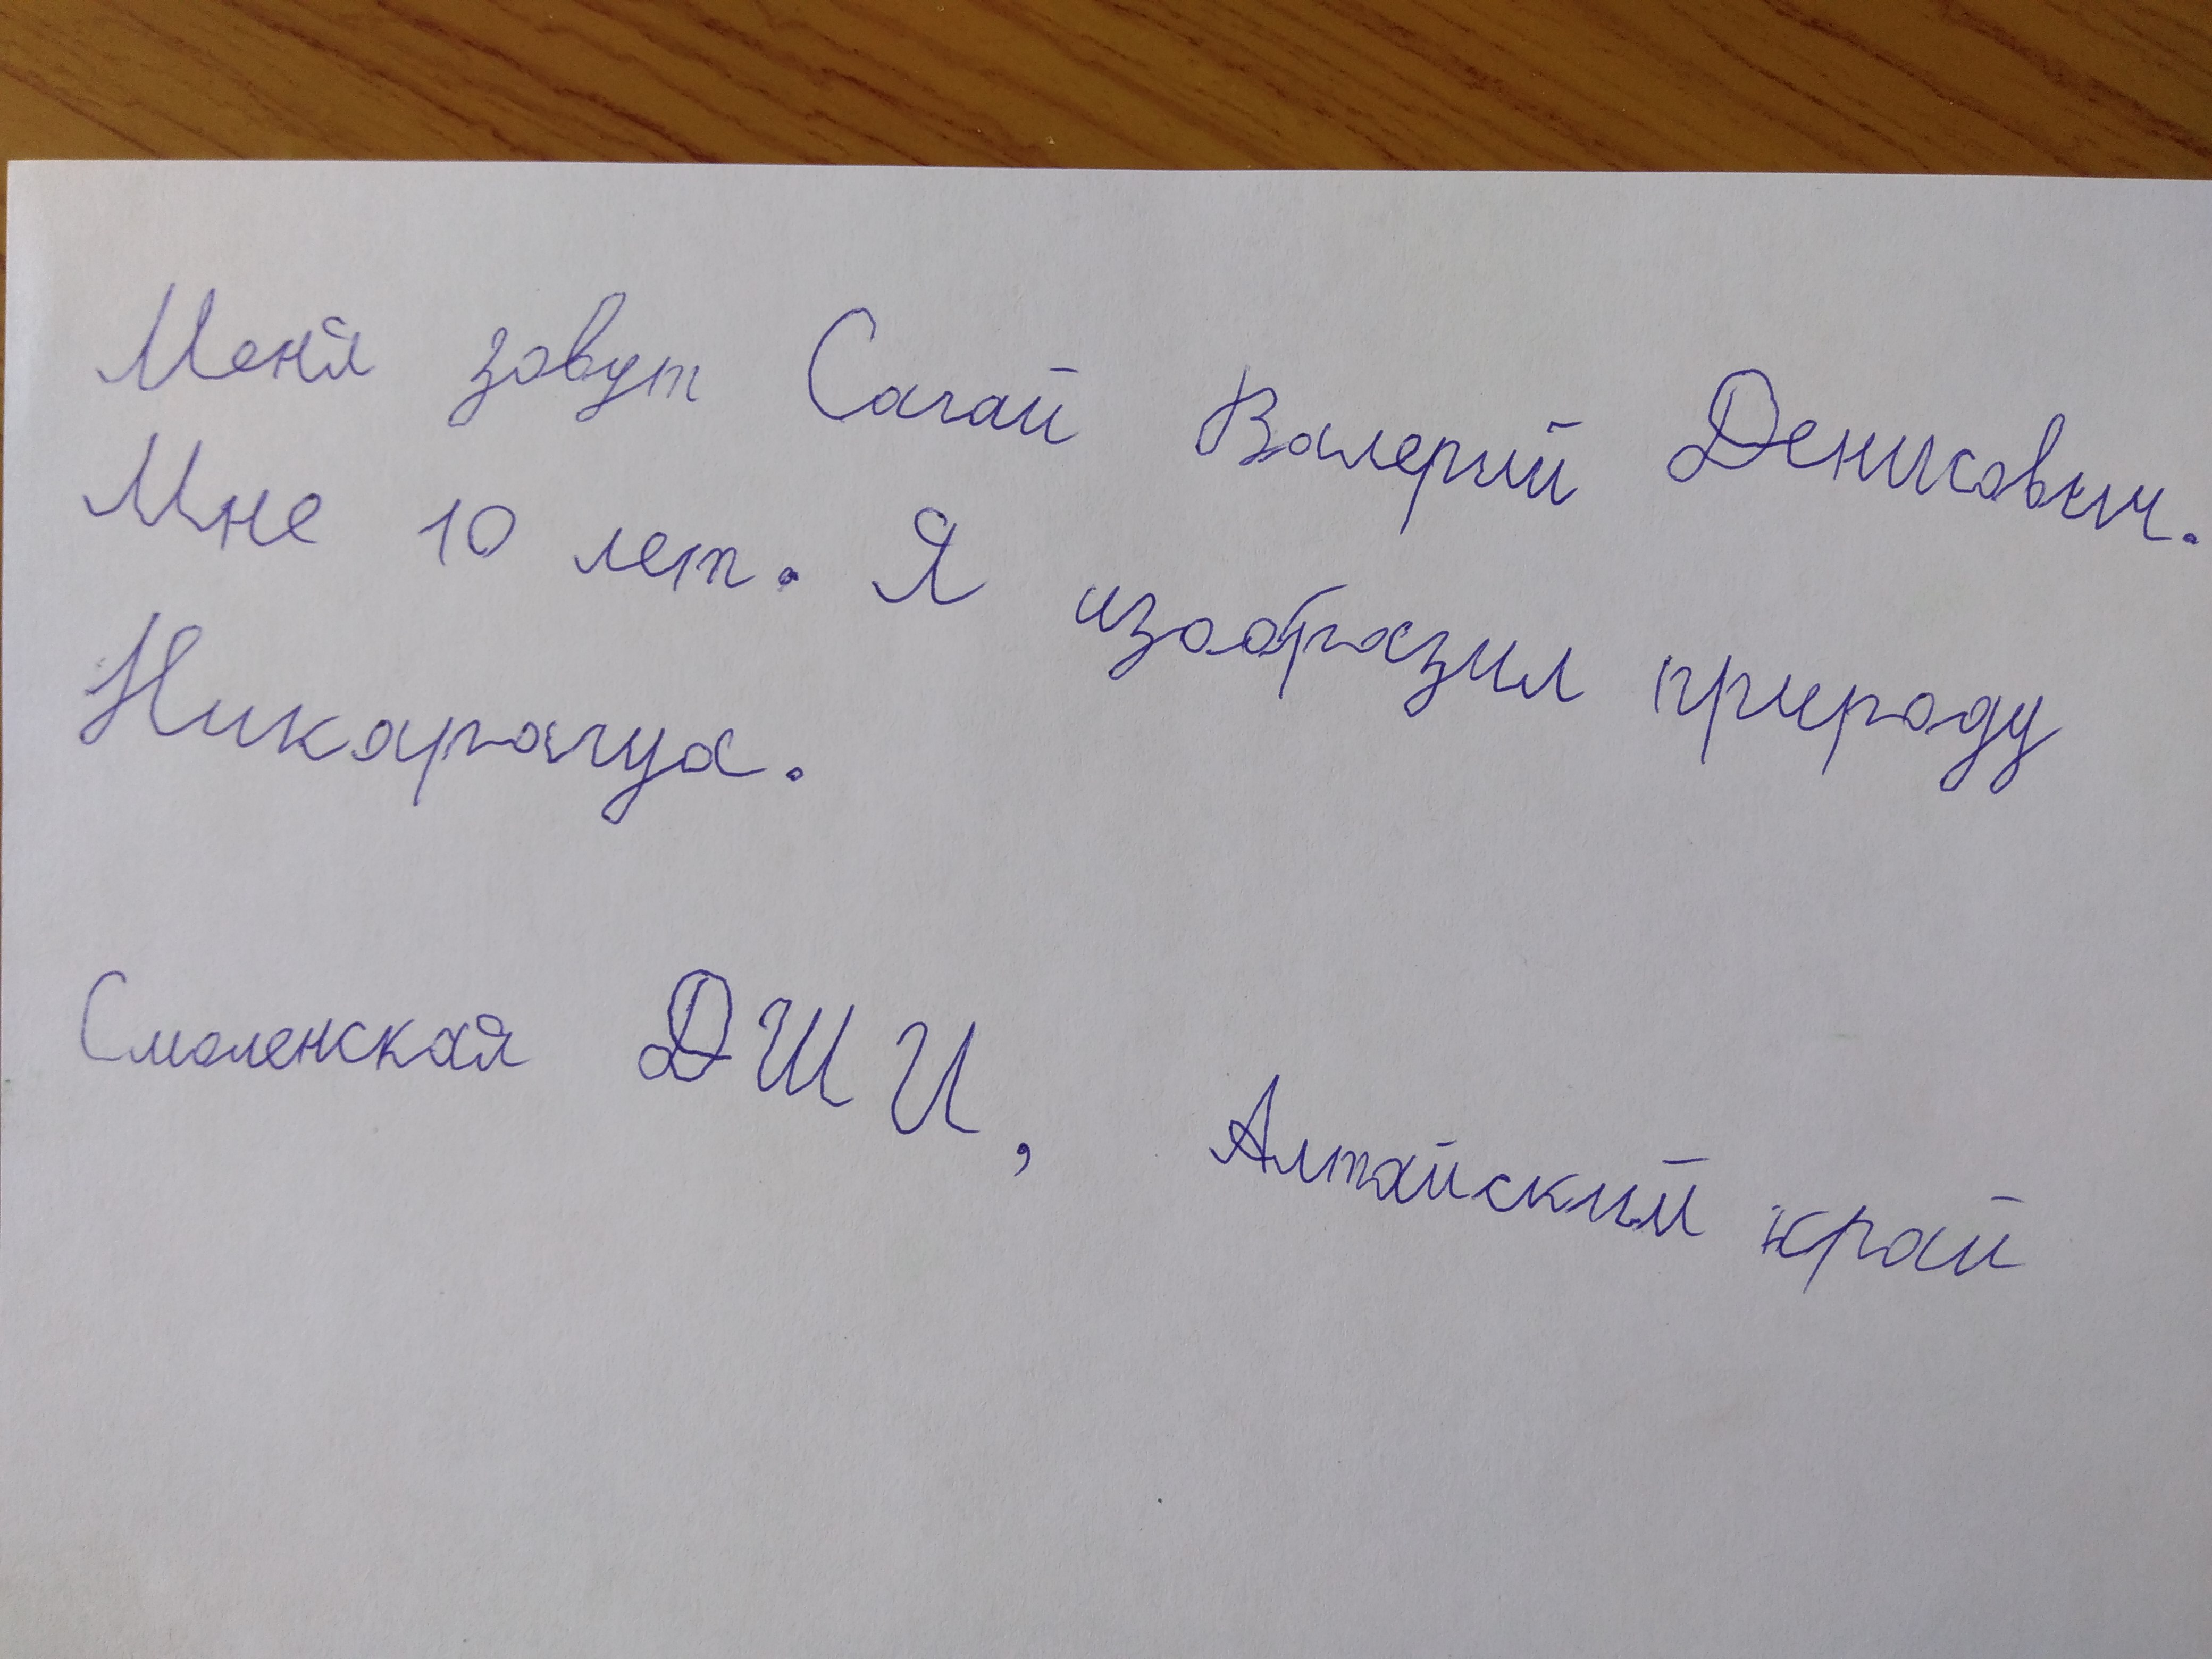 Меня зовут Сагай Валерий Денисович.
Мне 10 лет. Я изобразил природу
Никарагуа.
Смоленская ДШИ, Алтайский край